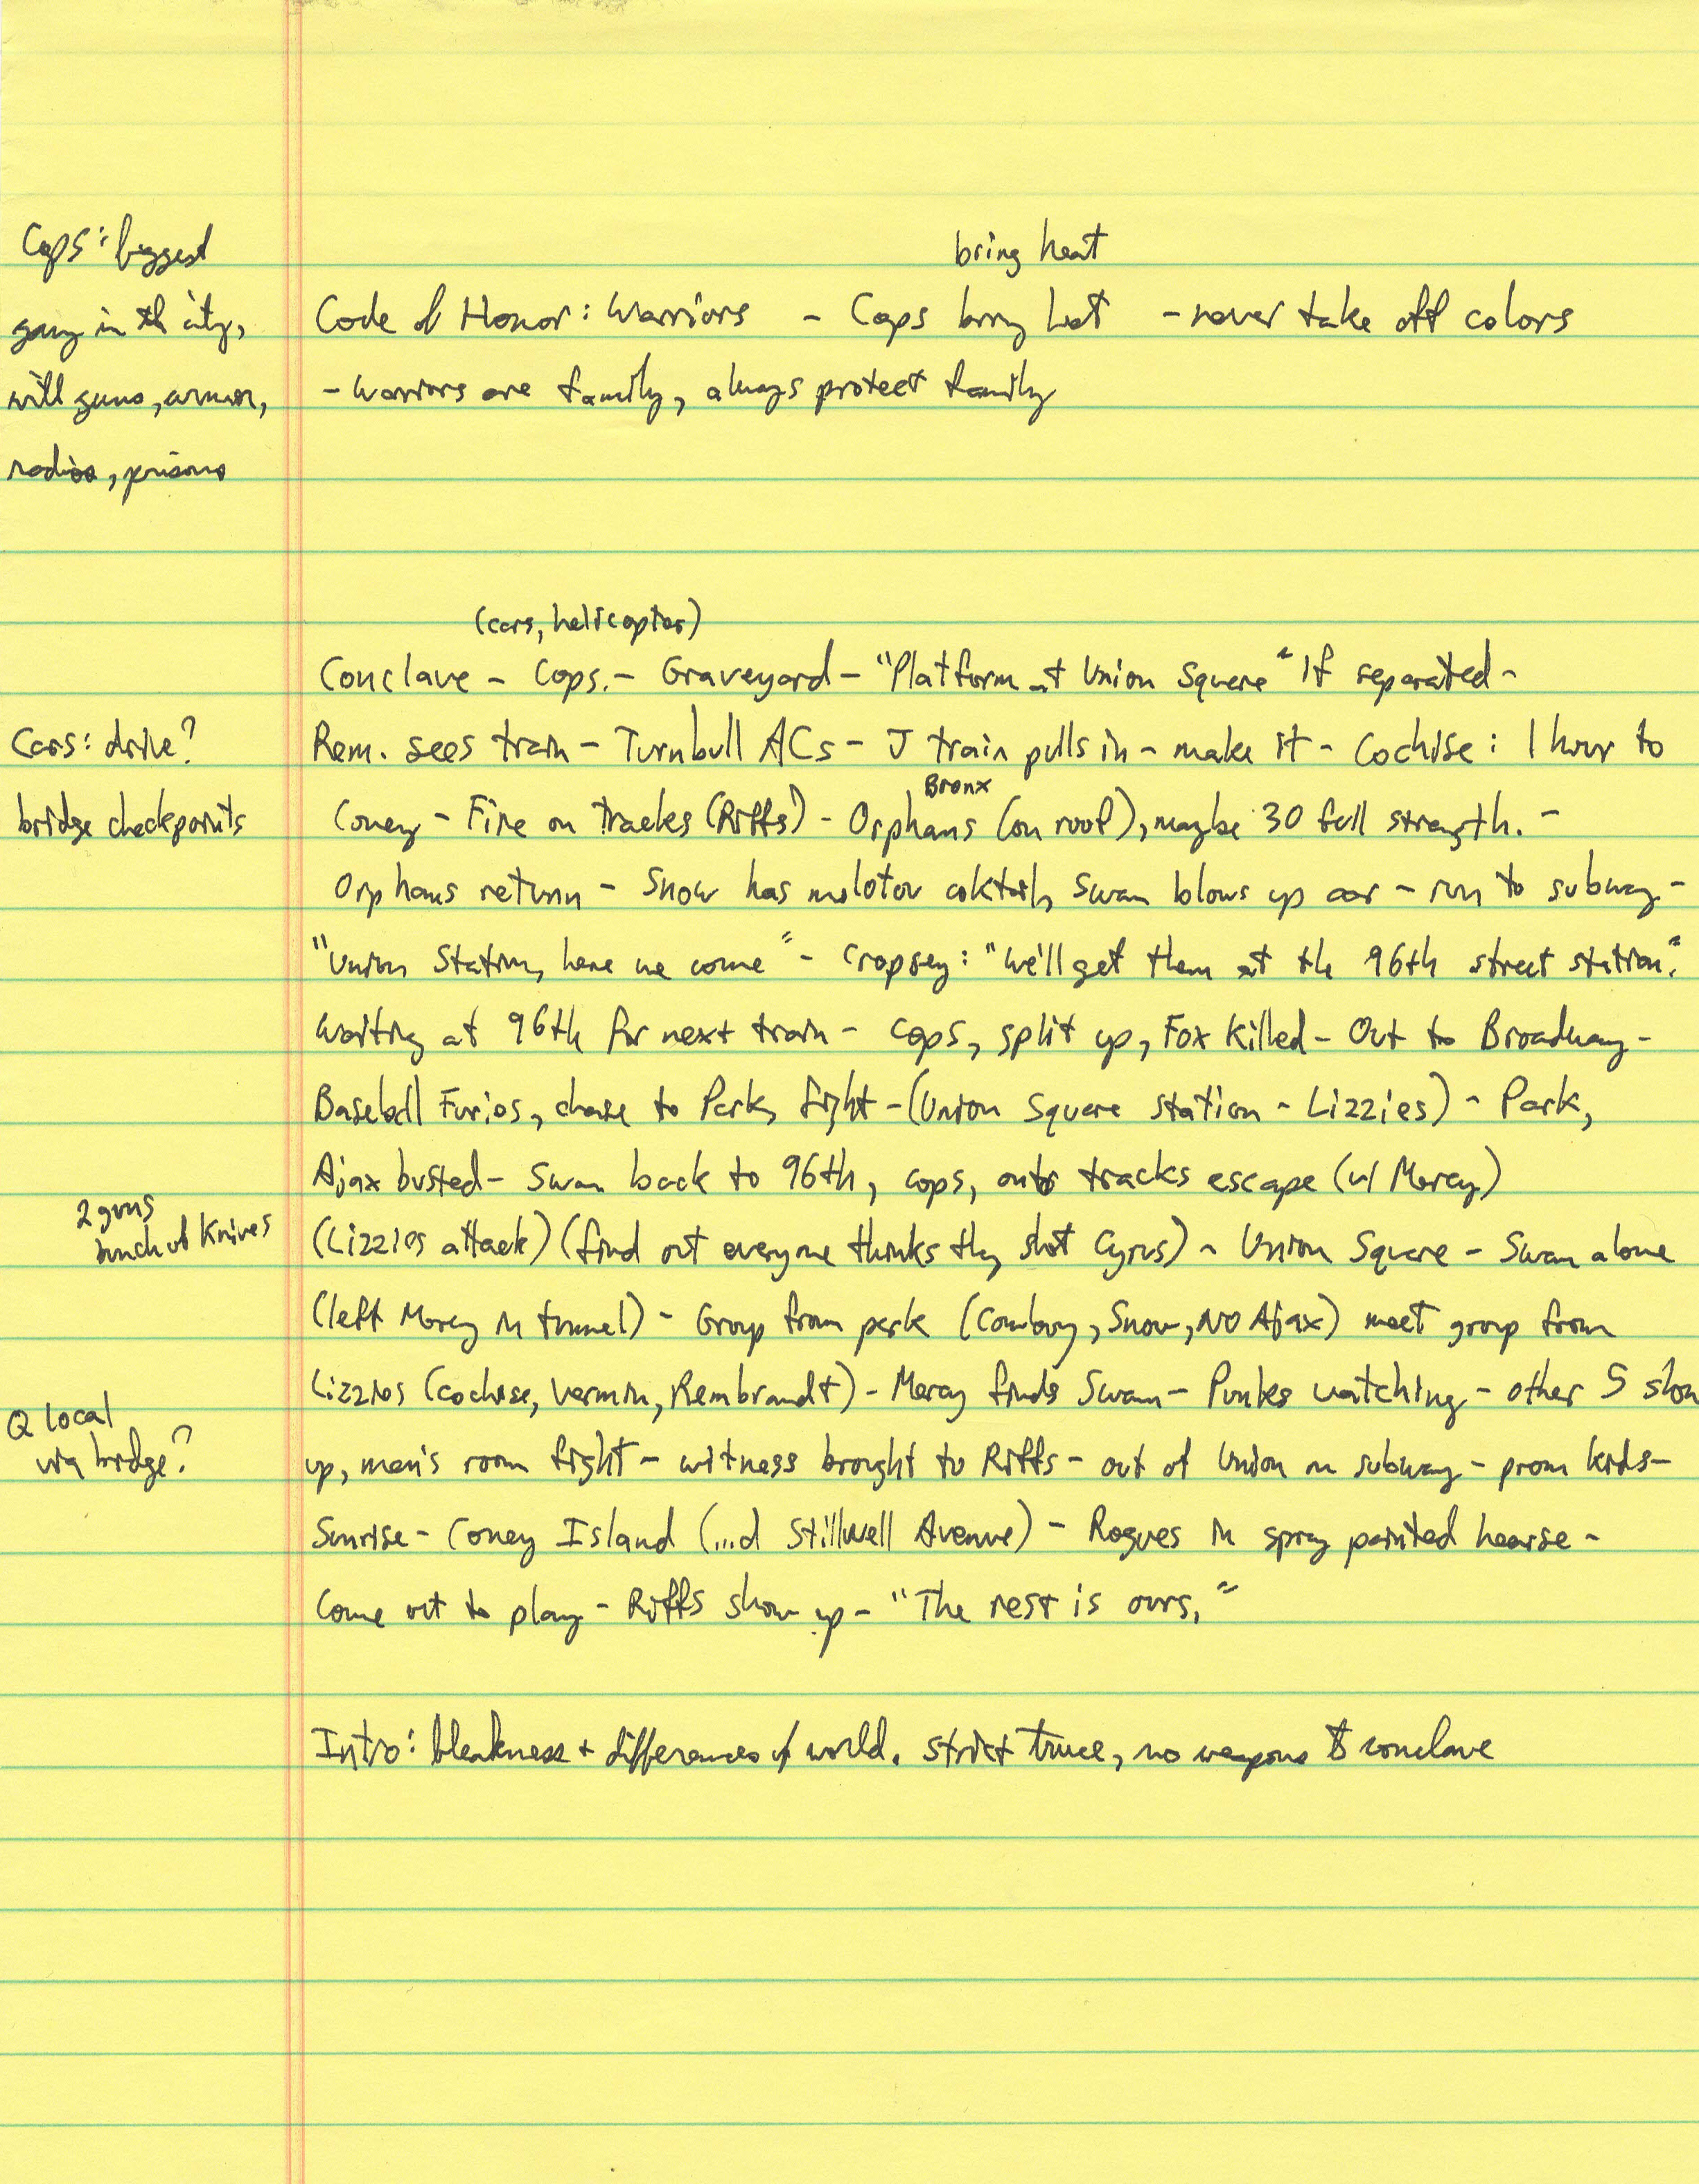 Cops: biggest
gang in th city,
with guns, armor,
radios, prisons
bring heat
Code of Honor: Warriors - Cops bring heat - never take off colors
- Warriors are family, always protect family
(cars, helicopter)
Conclave - Cops. - Graveyard - "Platform at Union Square" If separated -
Cars: drive?
Rem. sees train - Turnbull ACs - J train pulls in - make it - Cochise: 1 hour to
bridge checkpoints
Bronx
Coney - Fire on tracks (Riffs) - Orphans (on roof), maybe 30 full strength. -
Orphans return - Snow has molotov coktail, Swan blows up car - run to subway -
"Union Station, here we come" - Cropsey: "We'll get them at th 96th street station."
Waiting at 96th for next train - cops, split up, Fox killed - Out to Broadway -
Baseball Furies, chase to Park, fight - (Union Square station - Lizzies) - Park,
Ajax busted - Swan back to 96th, cops, onto tracks escape (w/ Mercy)
2 guns
bunch of knives
(Lizzies attack) (find out everyone thinks they shot Cyrus) - Union Square - Swan alone
(left Mercy in tunnel) - Group from park (Cowboy, Snow, NO Ajax) meet group from
Lizzies (Cochise, Vermin, Rembrandt) - Mercy finds Swan - Punks watching - other 5 show
Q local
via bridge?
up, men's room fight - witness brought to Riffs - out of Union on subway - prom kids -
Sunrise - Coney Island (...d Stillwell Avenue) - Rogues in spray painted hearse -
Come out to play - Riffs show up - "The rest is ours."
Intro: bleakness + differences of world. Strict truce, no weapons to conclave